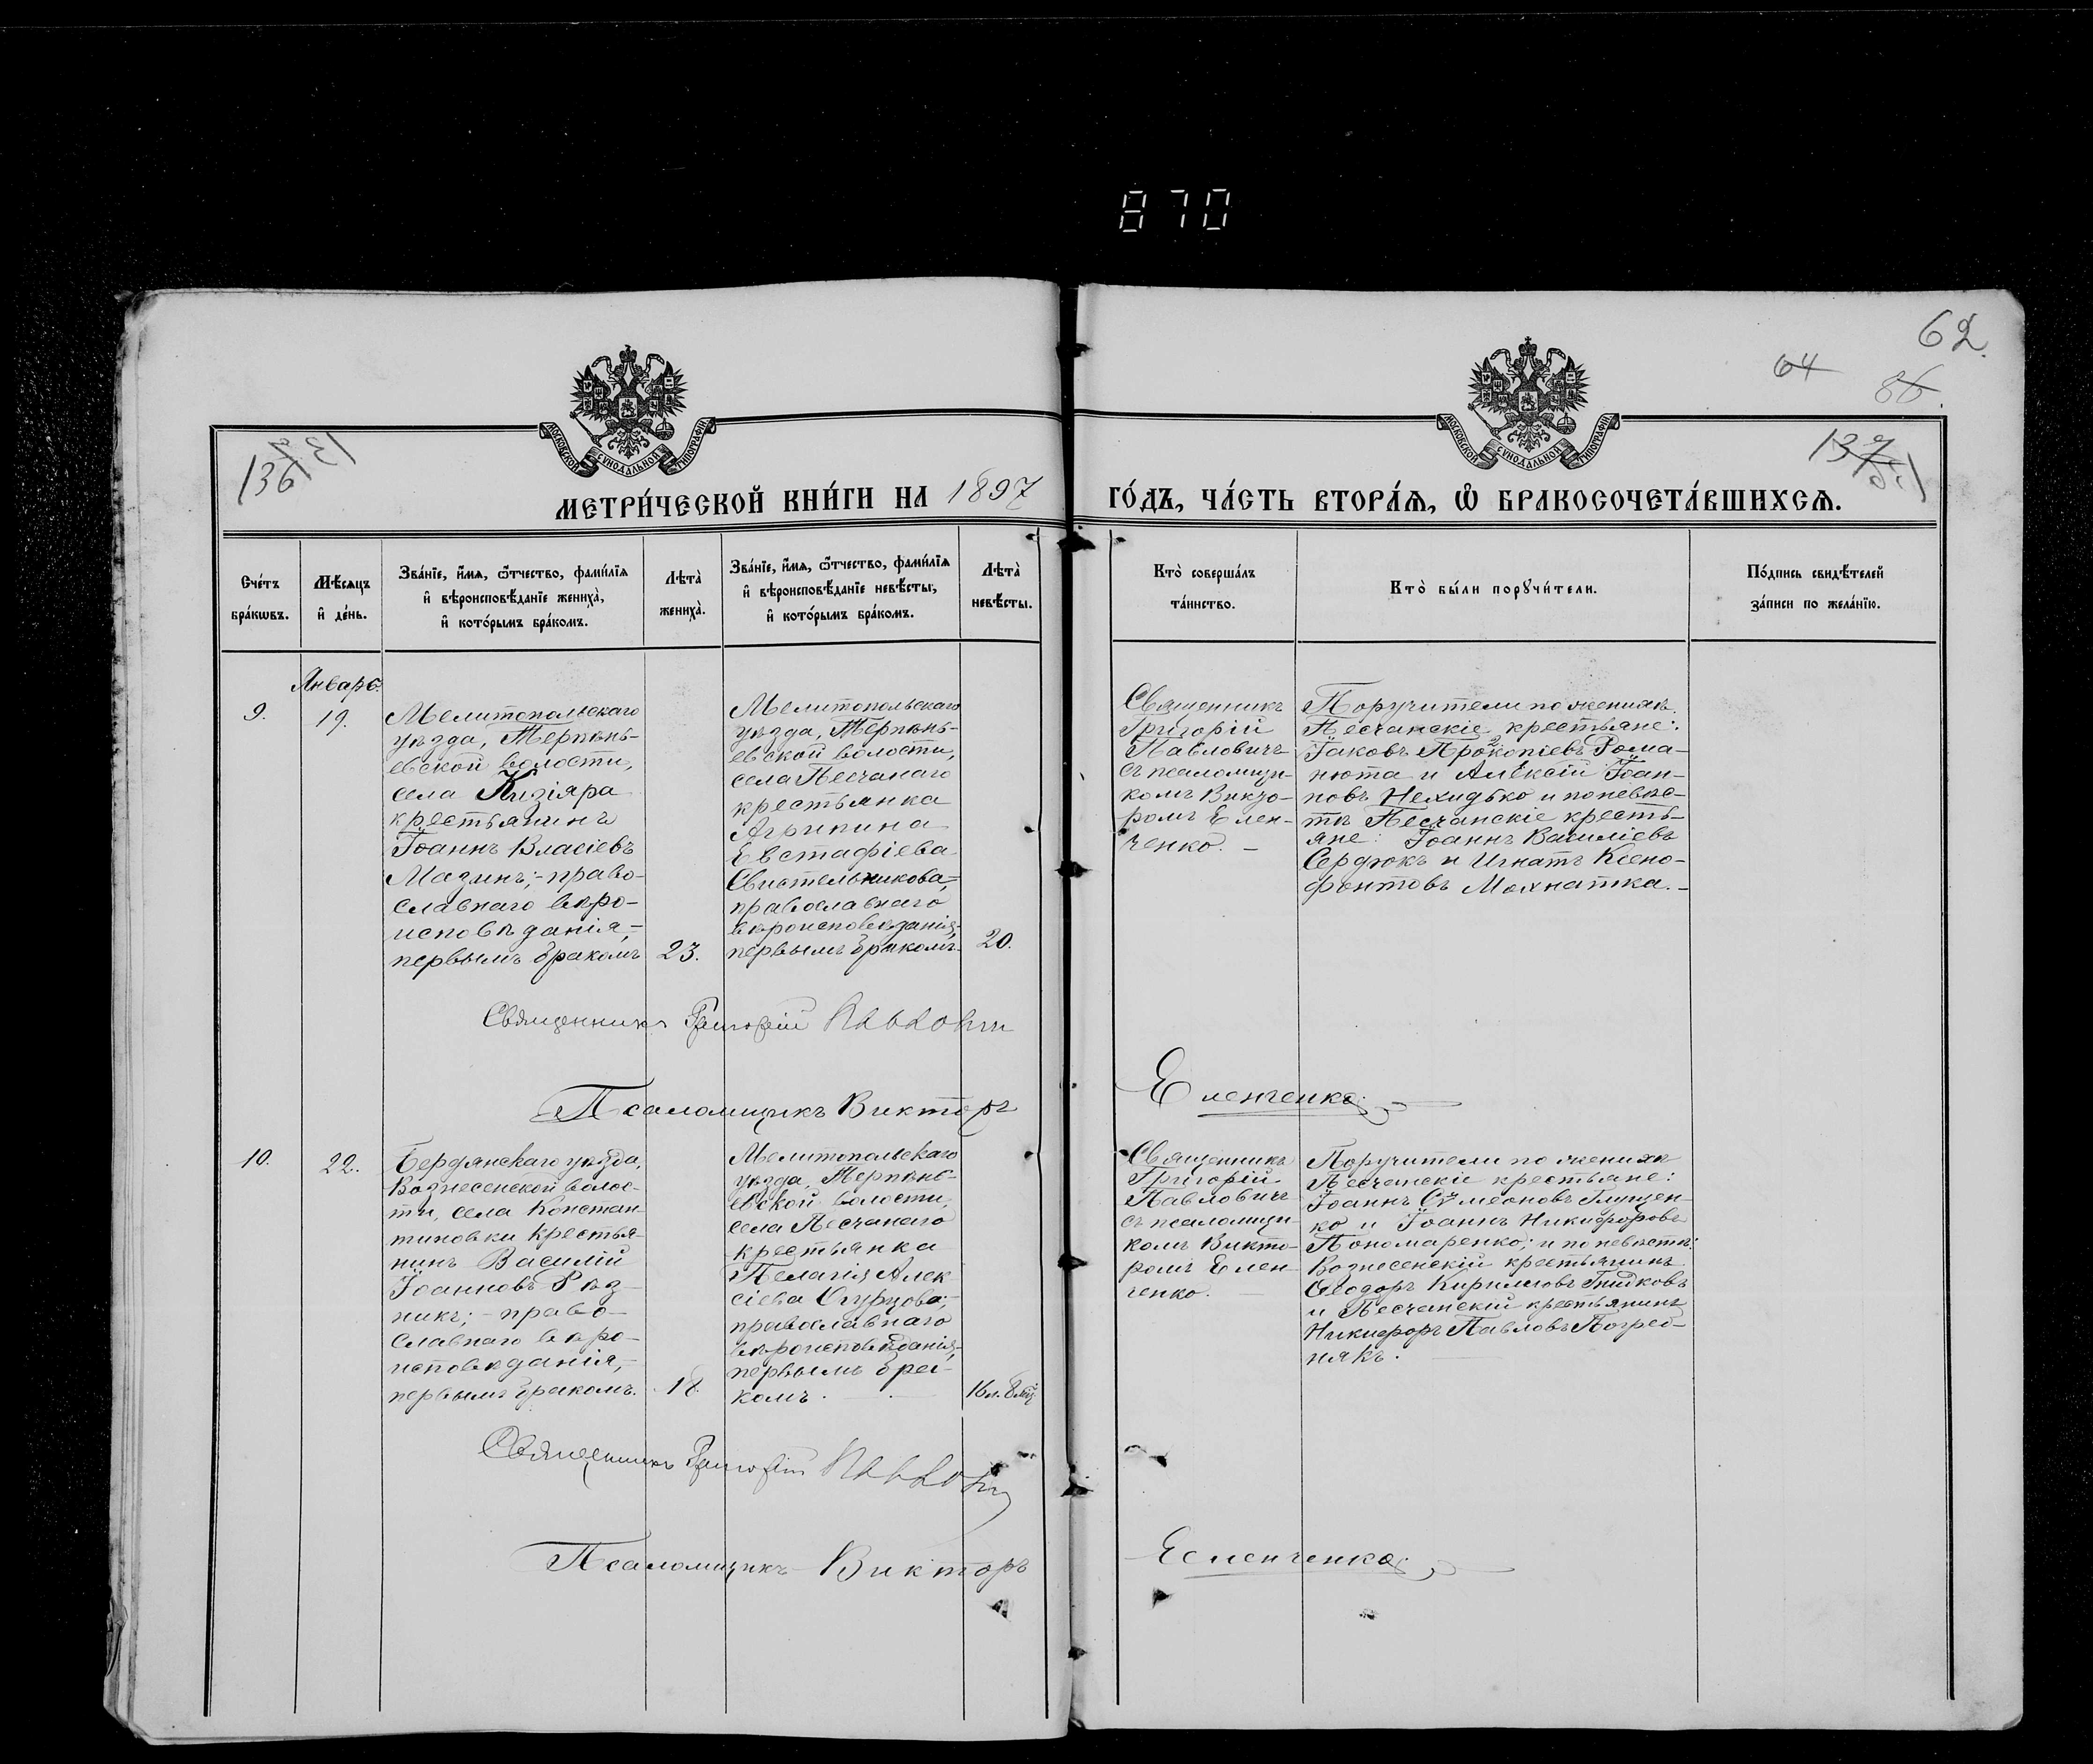 870
62
64
86
136
137
137
МОСКОВСКОЙ СѴНОДАЛЬНОЙ ТИПОГРАФІИ
МОСКОВСКОЙ СѴНОДАЛЬНОЙ ТИПОГРАФІИ
МЕТРИ́ЧЕСКОЙ КНИ́ГИ НА 1897 ГО́ДЪ, ЧА́СТЬ ВТОРА́Ѧ, Ѽ БРАКОСОЧЕТА́ВШИХСѦ.
Сче́тъ
бра́кѡвъ.
Мѣ́сѧцъ
и҆ де́нь.
Зва́нїе, и҆́мѧ, ѻ҆́тчество, фами́лїѧ
и҆ вѣроисповѣ́данїе жениха̀,
и҆ кото́рымъ бра́комъ.
Лѣта̀
жениха̀.
Зва́нїе, и҆́мѧ, ѻ҆́тчество, фами́лїѧ
и҆ вѣроисповѣ́данїе невѣ́сты,
и҆ кото́рымъ бра́комъ.
Лѣта̀
невѣ́сты.
Кто̀ соверша́лъ
та́инство.
Кто̀ бы́ли порꙋчи́тели.
По́дпись свидѣ́телей
за́писи по жела́нїю.
Январь
9.
19.
Мелитопольскаго
уѣзда, Терпѣнь-
евской волости,
села Кизіяра
крестьянинъ
Іоаннъ Власіевъ
Мазинъ;- право-
славнаго вѣро-
исповѣданія,-
первымъ бракомъ
23.
Мелитопольскаго
уѣзда, Терпѣнь-
евской волости,
села Песчанаго
крестьянка
Агрипина
Евстафіева
Свистельникова,-
православнаго
вѣроисповѣданія,-
первымъ бракомъ.
20.
Священникъ
Григорій
Павловичъ
съ псаломщи-
комъ Викто-
ромъ Елен-
ченко. -
Поручители по женихѣ
Песчанскіе крестьяне:
Іаковъ Прокопіевъ Рома-
нюта и Алексій Іоан-
новъ Нехидько и по невѣс-
тѣ Песчанскіе кресть-
яне: Іоаннъ Василіевъ
Сердюкъ и Игнатъ Ксено-
фонтовъ Мохнатка. -
Священникъ Григорій Павловичъ
Псаломщикъ Викторъ Еленченко
10.
22.
Бердянскаго уѣзда,
Вознесенской волос-
ти, села Констан
тиновки крестья-
нинъ Василій
Іоанновъ Рѣз-
никъ; - право-
славнаго вѣро-
исповѣданія,-
первымъ бракомъ.
18.
Мелитопольскаго
уѣзда, Терпѣнь-
евской волости,
села Песчанаго
крестьянка
Пелагія Алек
сіева Огурцова;-
православнаго
вѣроисповѣданія,-
первымъ бра-
комъ.
16 л. 8 мѣс.
Священникъ
Григорій
Павловичъ
съ псаломщи-
комъ Викто-
ромъ Елен-
ченко. -
Поручители по женихѣ
Песчанскіе крестьяне:
Іоаннъ Сѵмеоновъ Глущен-
ко и Іоаннъ Никифоровъ
Пономаренко; и по невѣстѣ:
Вознесенскій крестьянинъ
Ѳеодоръ Кирилловъ
и Песчанскій крестьянинъ
Никифоръ Павловъ Погреб-
някъ.
Священникъ Григорій Павловичъ
Псаломщикъ Викторъ Еленченко